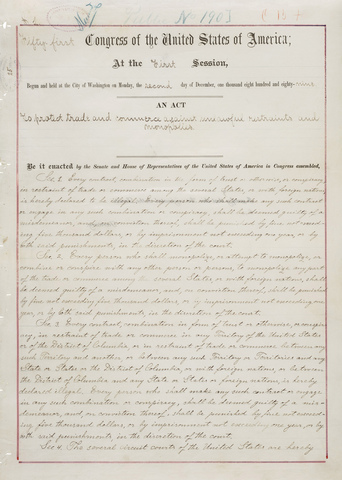 Fifty first Congress of the United States of America;
At the First Session,
Begun and held at the City of Washington on Monday, the second day of December, one thousand eight hundred and eighty-nine.
AN ACT
To protect trade and commerce against unlawful restraints and
monopolies.
Be it enacted by the Senate and House of Representatives of the United States of America in Congress assembled,
Sec. 1. Every contract, combination in the form of trust or otherwise, or conspiracy,
in restraint of trade or commerce among the several States, or with foreign nations,
is hereby declared to be illegal. Every person who shall make any such contract
or engage in any such combination or conspiracy, shall be deemed guilty of a
misdemeanor, and, on conviction thereof, shall be punished by fine not exceed-
ing five thousand dollars, or by imprisonment not exceeding one year, or by
both said punishments, in the discretion of the court.
Sec. 2. Every person who shall monopolize, or attempt to monopolize, or
combine or conspire with any other person or persons, to monopolize any part
of the trade or commerce among the several States, or with foreign nations, shall
be deemed guilty of a misdemeanor, and, on conviction thereof, shall be punished
by fine not exceeding five thousand dollars, or by imprisonment not exceeding one
year, or by both said punishments, in the discretion of the court.
Sec. 3. Every contract, combination in form of trust or otherwise, or conspir-
acy, in restraint of trade or commerce in any Territory of the United States
or of the District of Columbia, or in restraint of trade or commerce between any
such Territory and another, or between any such Territory or Territories and any
State or States or the District of Columbia, or with foreign nations, or between
the District of Columbia and any State or States or foreign nations, is hereby
declared illegal. Every person who shall make any such contract or engage
in any such combination or conspiracy, shall be deemed guilty of a misde-
demeanor, and, on conviction thereof, shall be punished by fine not exceed-
ing five thousand dollars, or by imprisonment not exceeding one year, or by
both said punishments, in the discretion of the court.
Sec. 4. The several circuit courts of the United States are hereby